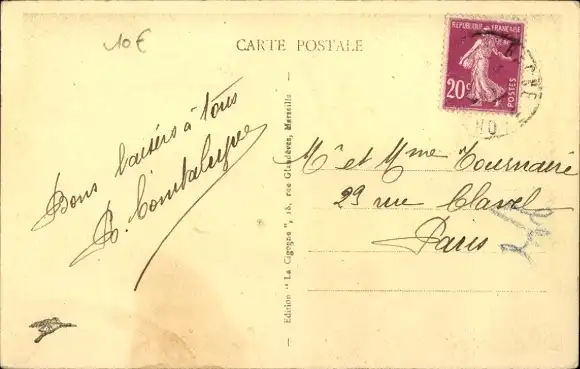 10€
CARTE POSTALE
REPUBLIQUE FRANÇAISE
20c
POSTES
Bons baisers à tous
Edition "La Cigogne", 16, rue Glandèves, Marseille.
Mr et Mme Tournaire
29 rue Clavel
Paris